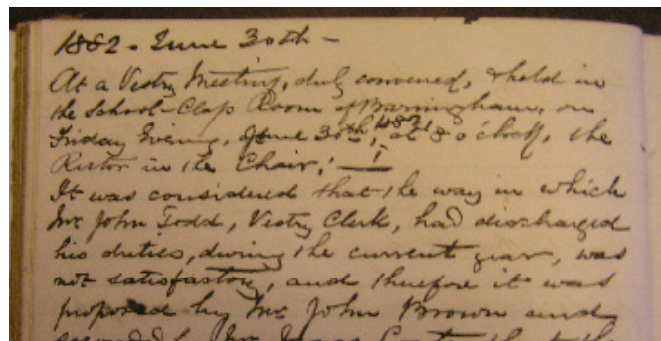 1882 - June 30th -
At a Vestry Meeting, duly convened, & held in
the School-Class Room of Barningham, on
Friday Evening, June 30th, 1882, at 8 o'clock, the
Rector in the Chair; —
It was considered that the way in which
Mr John Todd, Vestry Clerk, had discharged
his duties, during the current year, was
not satisfactory, and therefore it was
proposed by Mr John Brown and
seconded by Mr that the